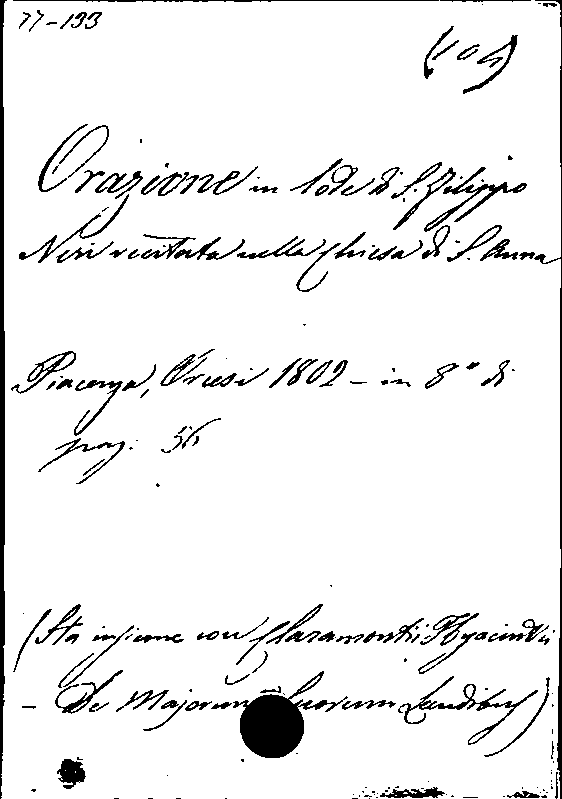 77-133
(104)
Orazione in lode di S. Filippo
Neri recitata nella Chiesa di S. Anna
Piacenza, Orcesi 1802 - in 8° di
pag. 56
(Sta insieme con Claramontii Hyacinthi
- De Majorum Suorum Laudibus)